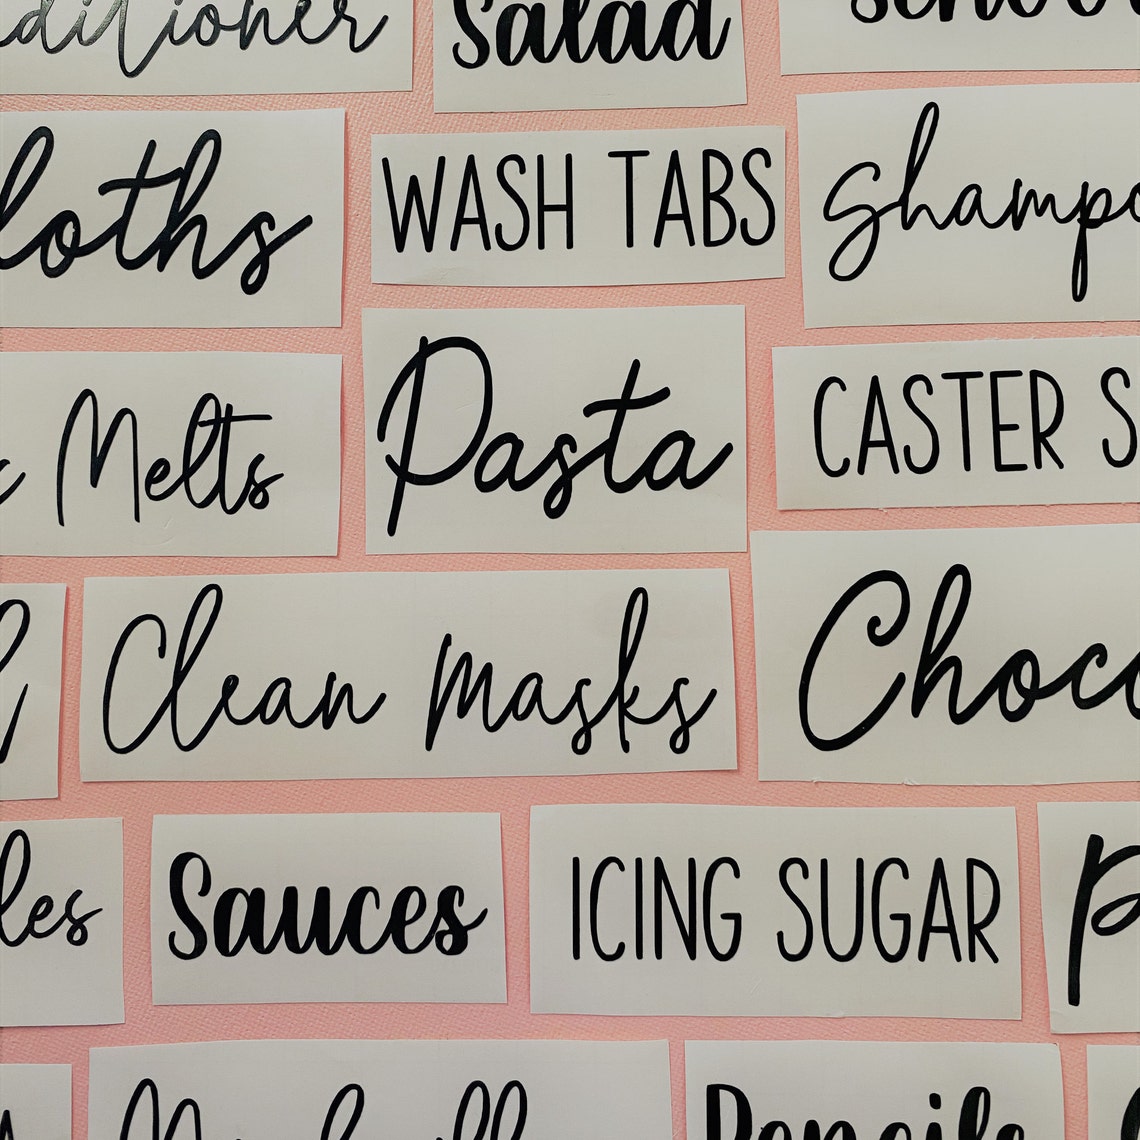 ditioner
Salad
School
loths
WASH TABS
Shampo
Melts
Pasta
CASTER S
Clean Masks
Choco
les
Sauces
ICING SUGAR
P
Pencils